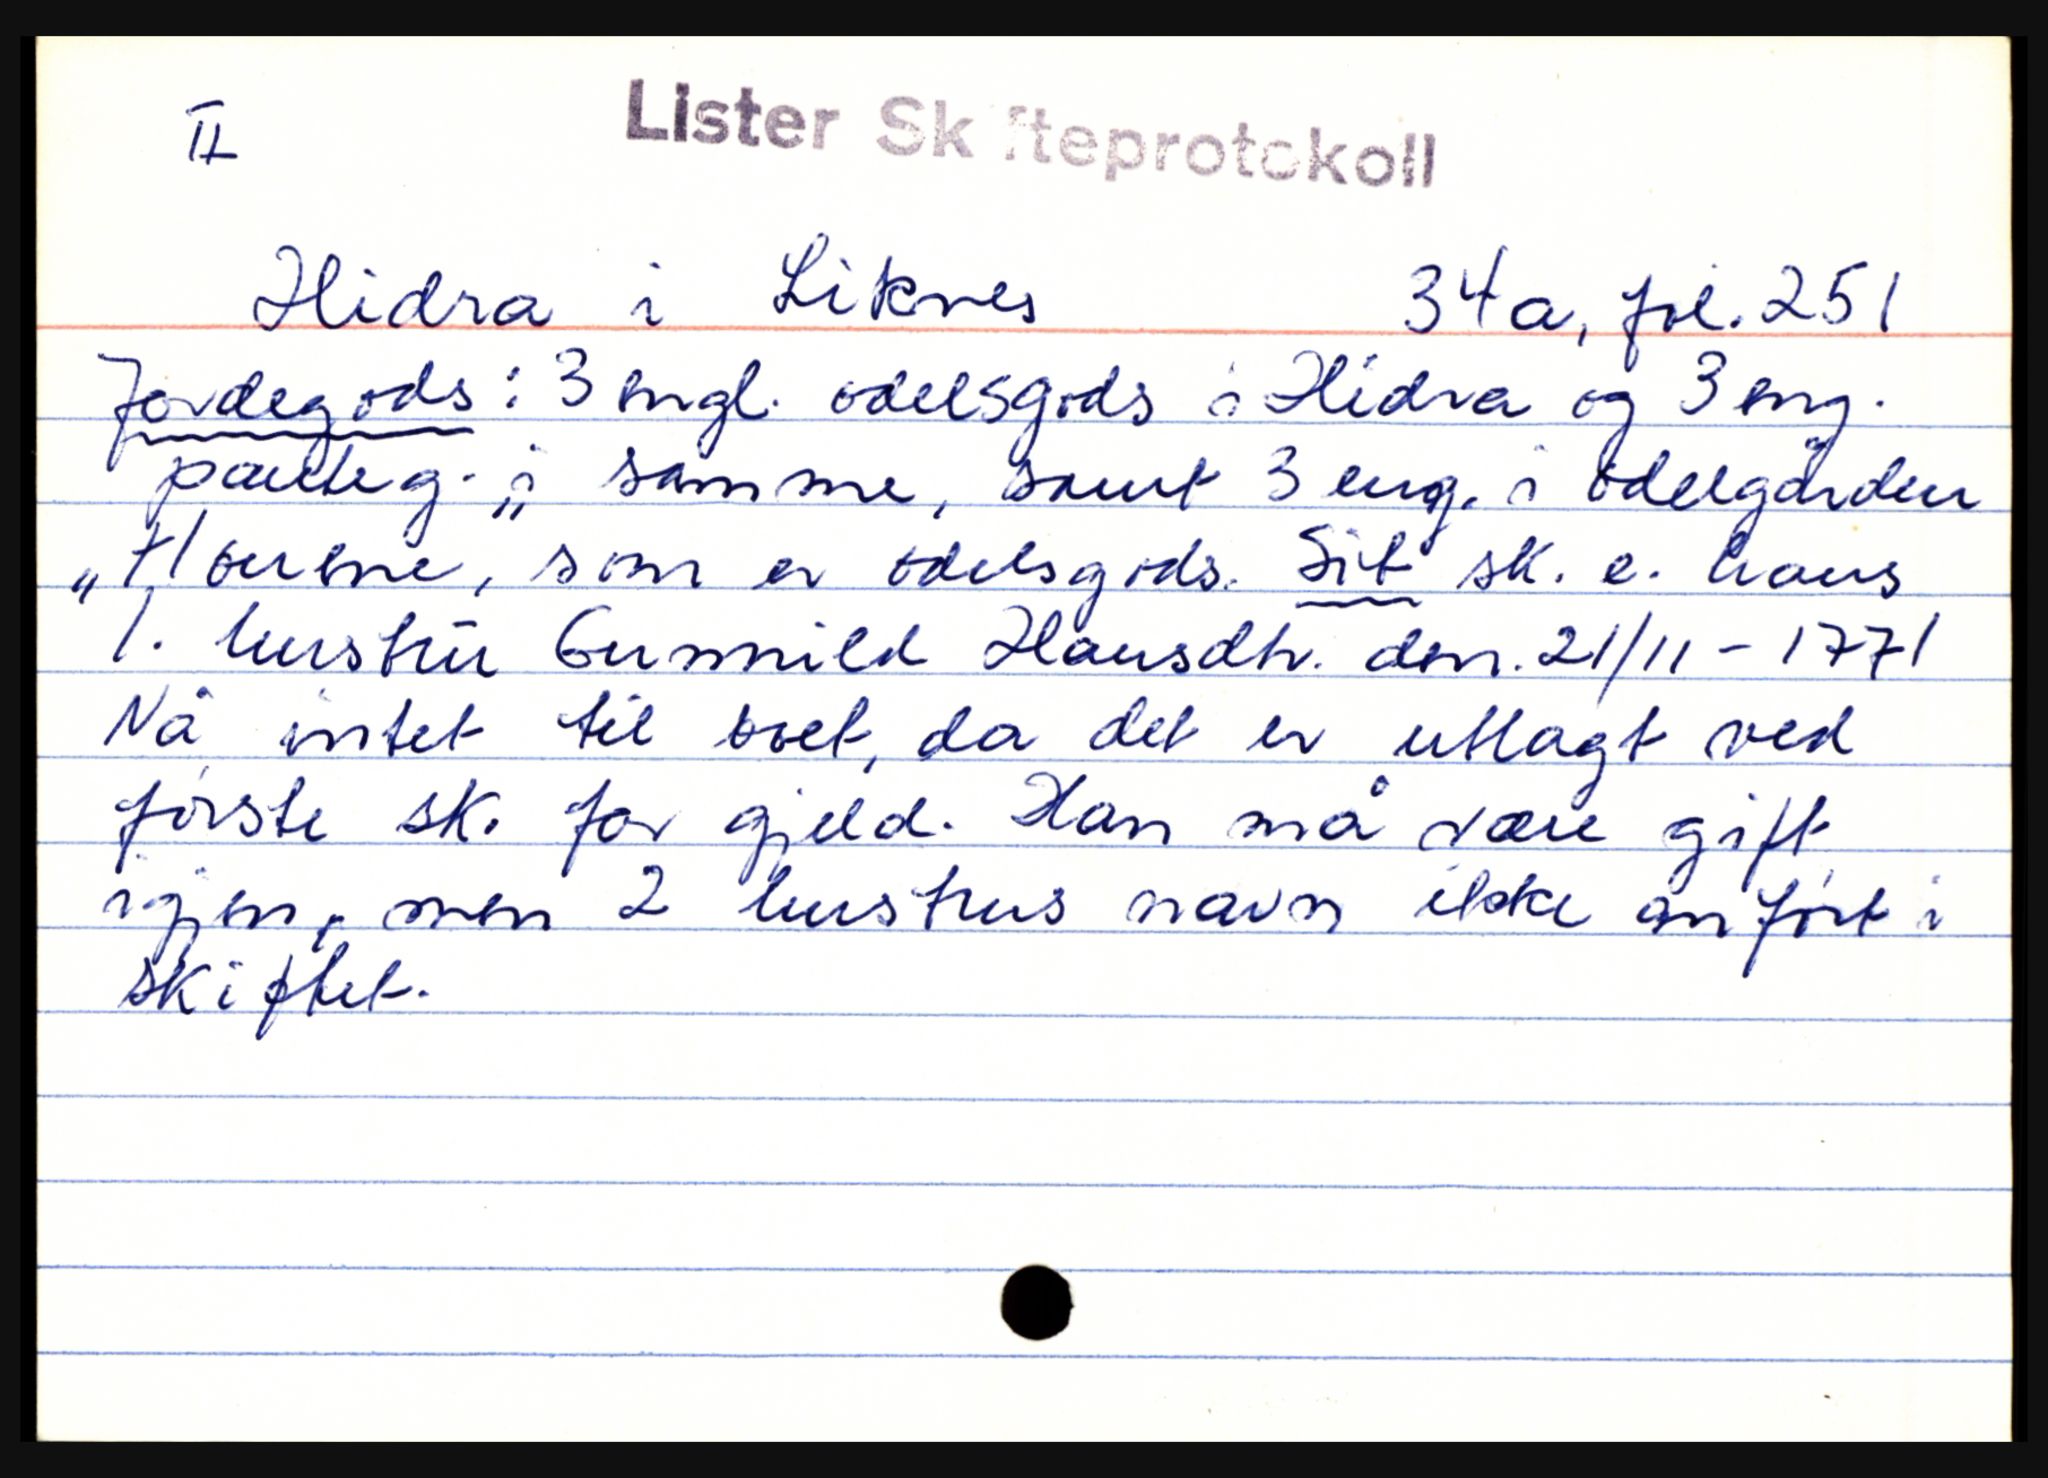 II
Lister Skifteprotokoll
Hidra i Liknes 34a, fol. 251
Jordegods: 3 engl. odelsgods i Hidra og 3 eng.
panteg. i samme, samt 3 eng. i ödelgården
som er odelsgods. Sit sk. e. hans
1. hustrü Gunnild Hansdtr. den. 21/11-1771
Nå intet til boet, da det er utlagt ved
første sk. for gjeld. Han må være gift
igjen, men 2 hustrus navn ikke anført i
skiftet.